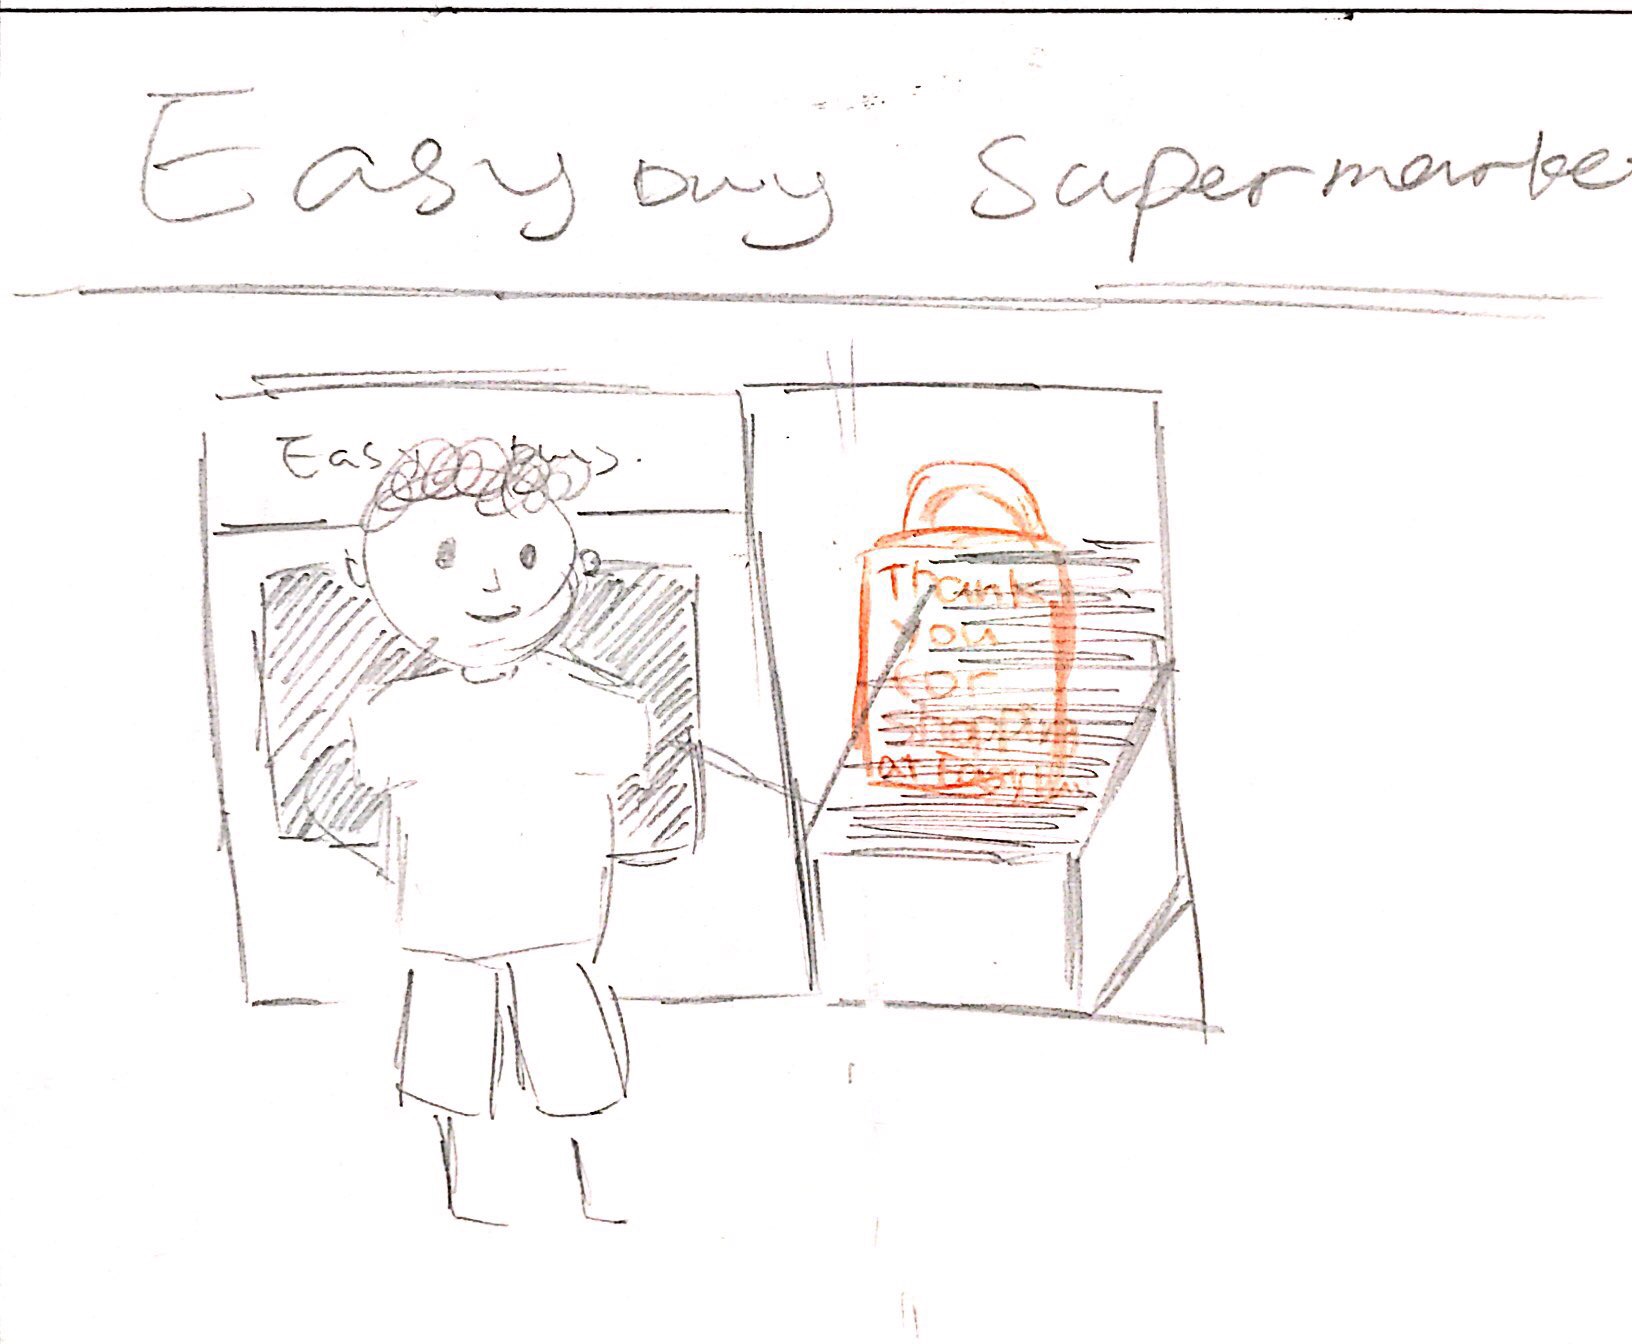 Easy buy Supermarke
Easy buy.
Thank
you
for
shoppin
at Easy